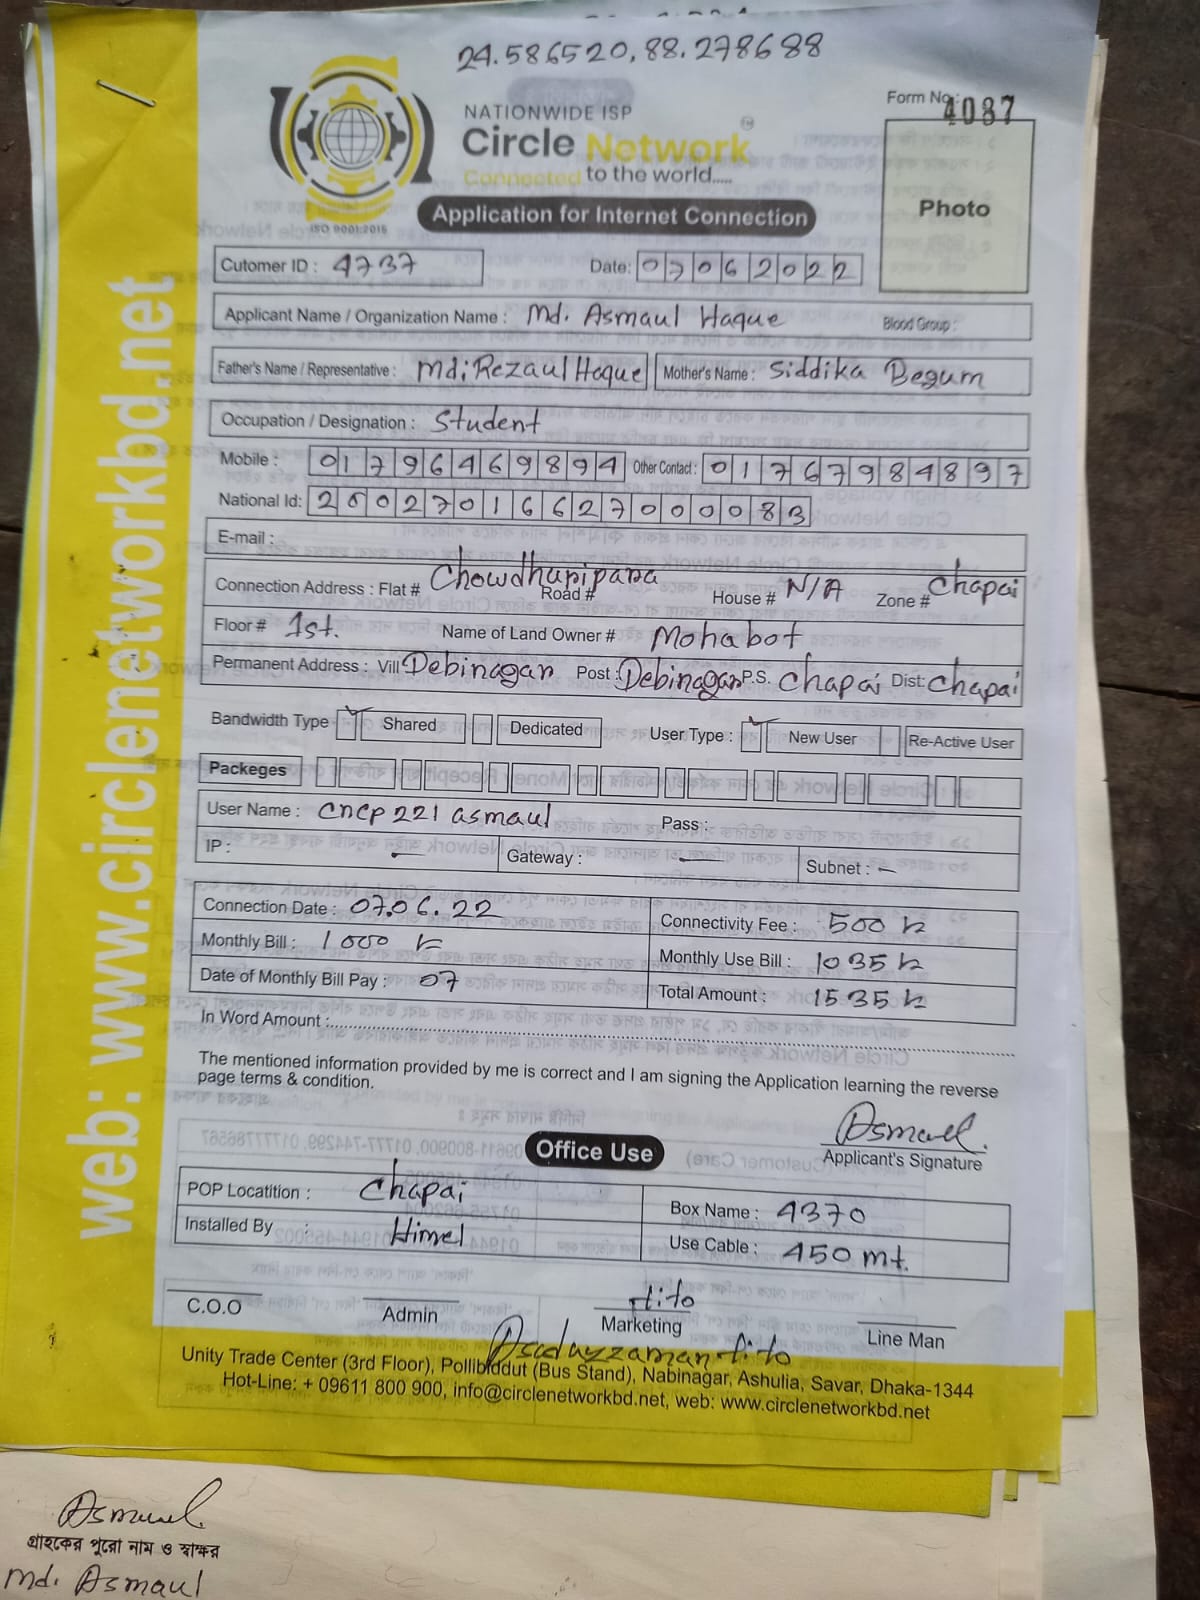 24.586520,88.278688
NATIONWIDE ISP
Circle Network
Connected to the world.....
ISO 9001:2015
Application for Internet Connection
Form No.: 4087
Photo
Cutomer ID : 4737 Date: 07062022
Applicant Name / Organization Name : Md. Asmaul Haque Blood Group :
Father's Name / Representative : Md: Rezaul Haque Mother's Name : Siddika Begum
Occupation / Designation : Student
Mobile : 01796469894 Other Contact : 01767984897
National Id: 20027016627000083
E-mail :
Connection Address : Flat # Chowdhuripara Road # House # N/A Zone # Chapai
Floor # 1st. Name of Land Owner # Mohabot
Permanent Address : Vill Debinagar Post : Debinagar P.S. Chapai Dist: Chapai
Bandwidth Type Shared Dedicated User Type : New User Re-Active User
Packeges
User Name : cncp221asmaul Pass :
IP : — Gateway : — Subnet : —
Connection Date : 07.06.22 Connectivity Fee : 500 tk
Monthly Bill : 1000 tk Monthly Use Bill : 1035 tk
Date of Monthly Bill Pay : 07 Total Amount : 1535 tk
In Word Amount :
The mentioned information provided by me is correct and I am signing the Application learning the reverse
page terms & condition.
Asmaul.
Applicant's Signature
Office Use
POP Locatition : Chapai Box Name : 4370
Installed By : Himel Use Cable : 450 mt.
tito
C.O.O Admin Marketing Line Man
Asaduzzaman tito
Unity Trade Center (3rd Floor), Pollibiddut (Bus Stand), Nabinagar, Ashulia, Savar, Dhaka-1344
Hot-Line: + 09611 800 900, info@circlenetworkbd.net, web: www.circlenetworkbd.net
web: www.circlenetworkbd.net
Asmaul.
গ্রাহকের পুরো নাম ও স্বাক্ষর
Md. Asmaul